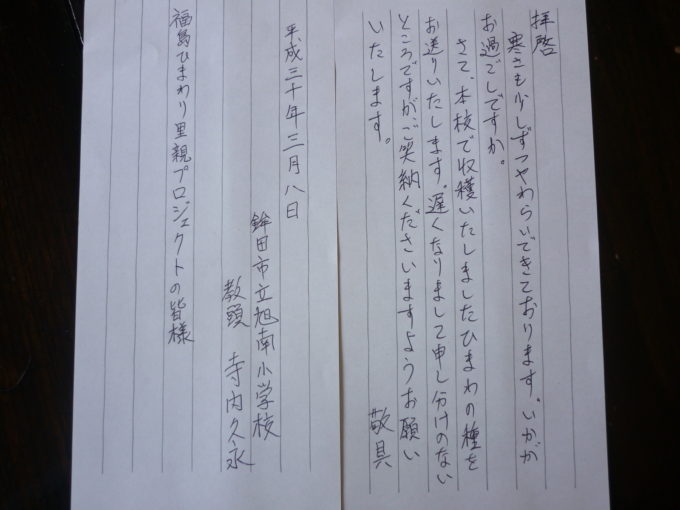 拝啓
寒さも少しずつやわらいできております。いかが
お過ごしですか。
さて、本校で収穫いたしましたひまわの種を
お送りいたします。遅くなりまして申し分けのない
ところですが、ご笑納くださいますようお願い
いたします。
敬具
平成三十年三月八日
鉾田市立旭南小学校
教頭 寺内久永
福島ひまわり里親プロジェクトの皆様